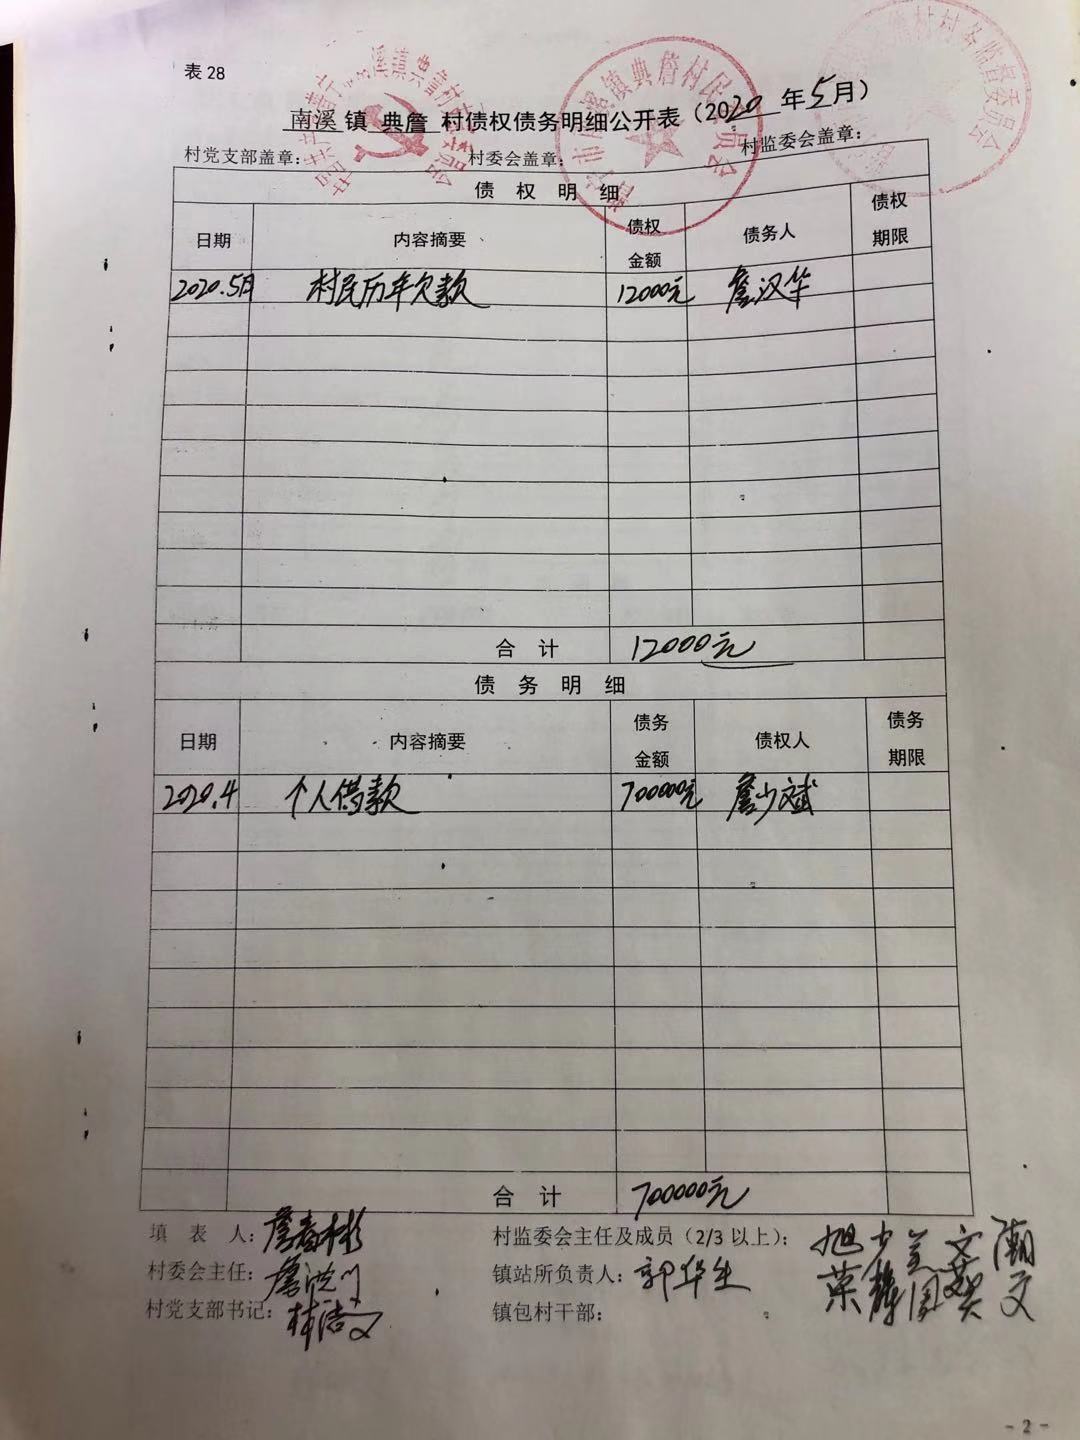 表 28
南溪 镇 典詹 村债权债务明细公开表（2020 年 5 月）
村党支部盖章： 村委会盖章： 村监委会盖章：
债 权 明 细
日期 内容摘要 债权金额 债务人 债权期限
2020.5月 村民历年欠款 12000元 詹汉华
合 计 12000元
债 务 明 细
日期 内容摘要 债务金额 债权人 债务期限
2020.4 个人借款 700000元 詹少斌
合 计 700000元
填 表 人：詹春彬 村监委会主任及成员（2/3 以上）：
村委会主任：詹 镇站所负责人：郭华生
村党支部书记：林浩文 镇包村干部：
- 2 -